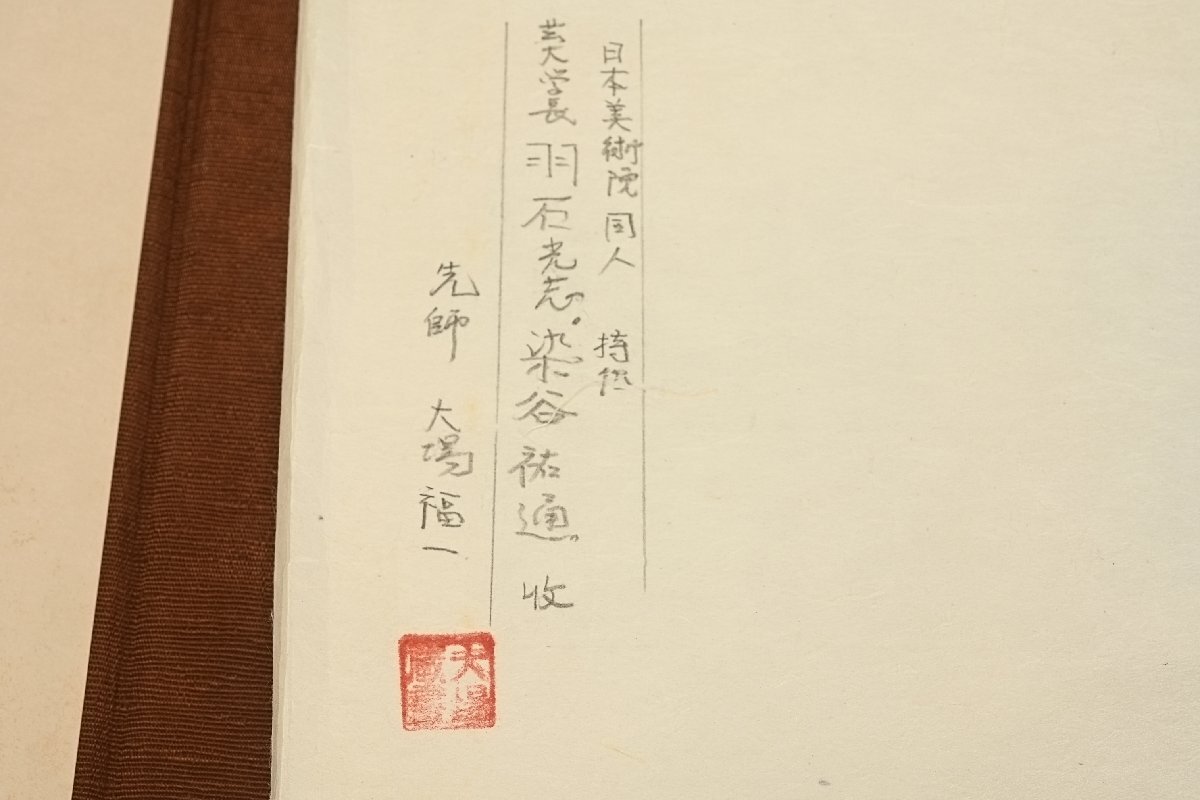 日本美術院同人 持
芸大学長 羽石光志。染谷祐通。収
先師 大場福一